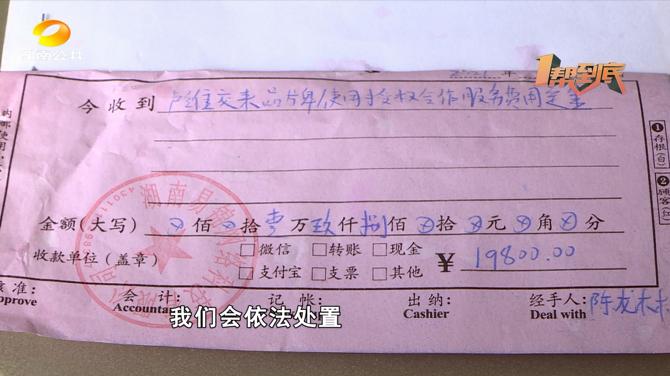 湖南公共
1帮到底
年
今收到 卢维交来品牌使用授权合作服务费用定金
金额(大写) ⊗佰⊗拾壹万玖仟捌佰⊗拾⊗元⊗角⊗分
收款单位(盖章) □微信 □转账 □现金 ¥ 19800.00
□支付宝 □支票 □其他
核准: 会 计: 记 帐: 出 纳: 经手人:
Approve Accounta Cashier Deal with
①存根(白)
②顾客
我们会依法处置